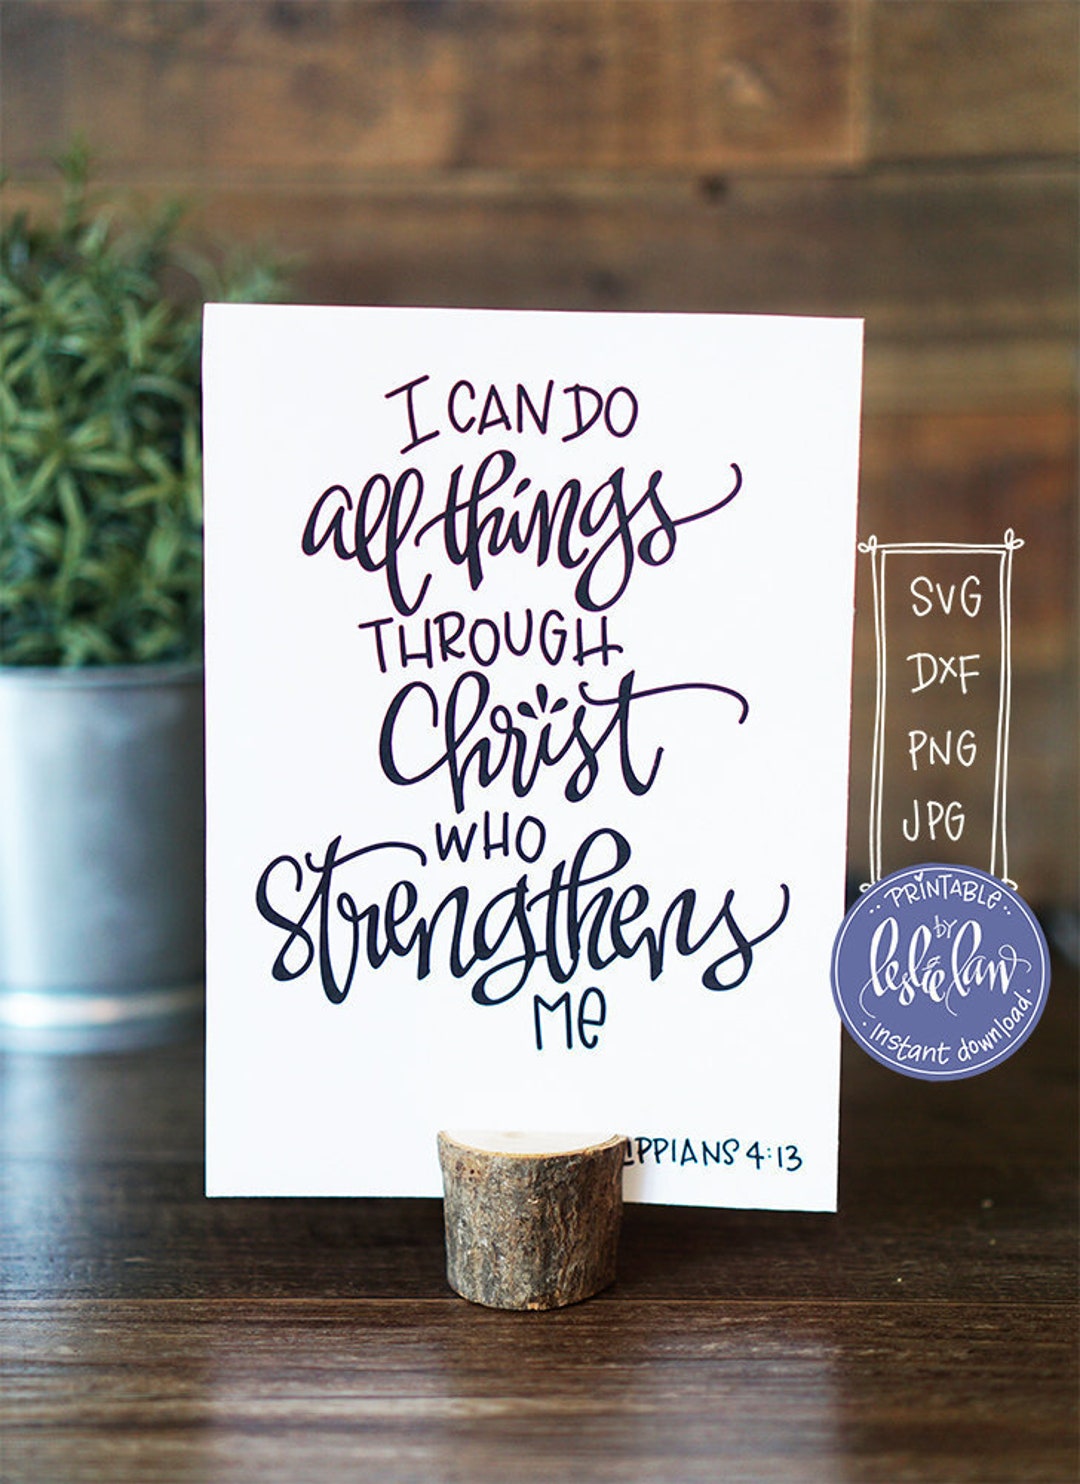 I CAN DO
all things
THROUGH
Christ
WHO
Strengthens
ME
IPPIANS 4:13
SVG
DXF
PNG
JPG
PRINTABLE
by
leslie law
instant download